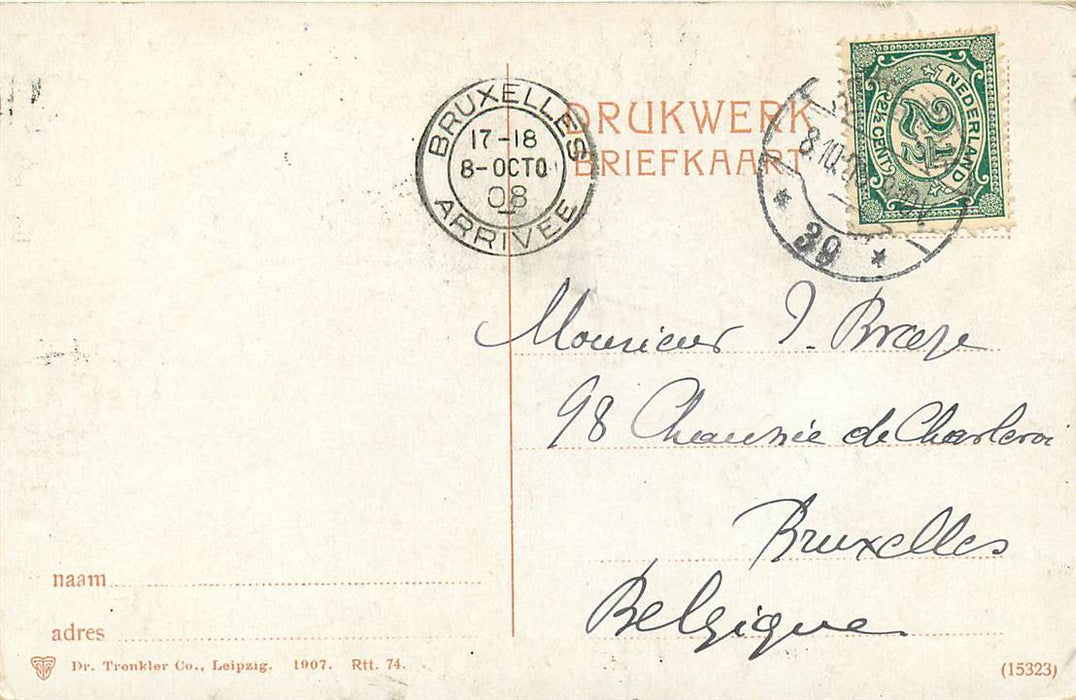 BRUXELLES
17-18
8-OCTO
08
ARRIVEE
DRUKWERK
BRIEFKAART
NEDERLAND
2½
2½ CENT
8.10.0
39
Monsieur J. Braeye
98 Chaussée de Charleroi
Bruxelles
Belgique.
naam
adres
Dr. Trenkler Co., Leipzig. 1907. Rtt. 74.
(15323)